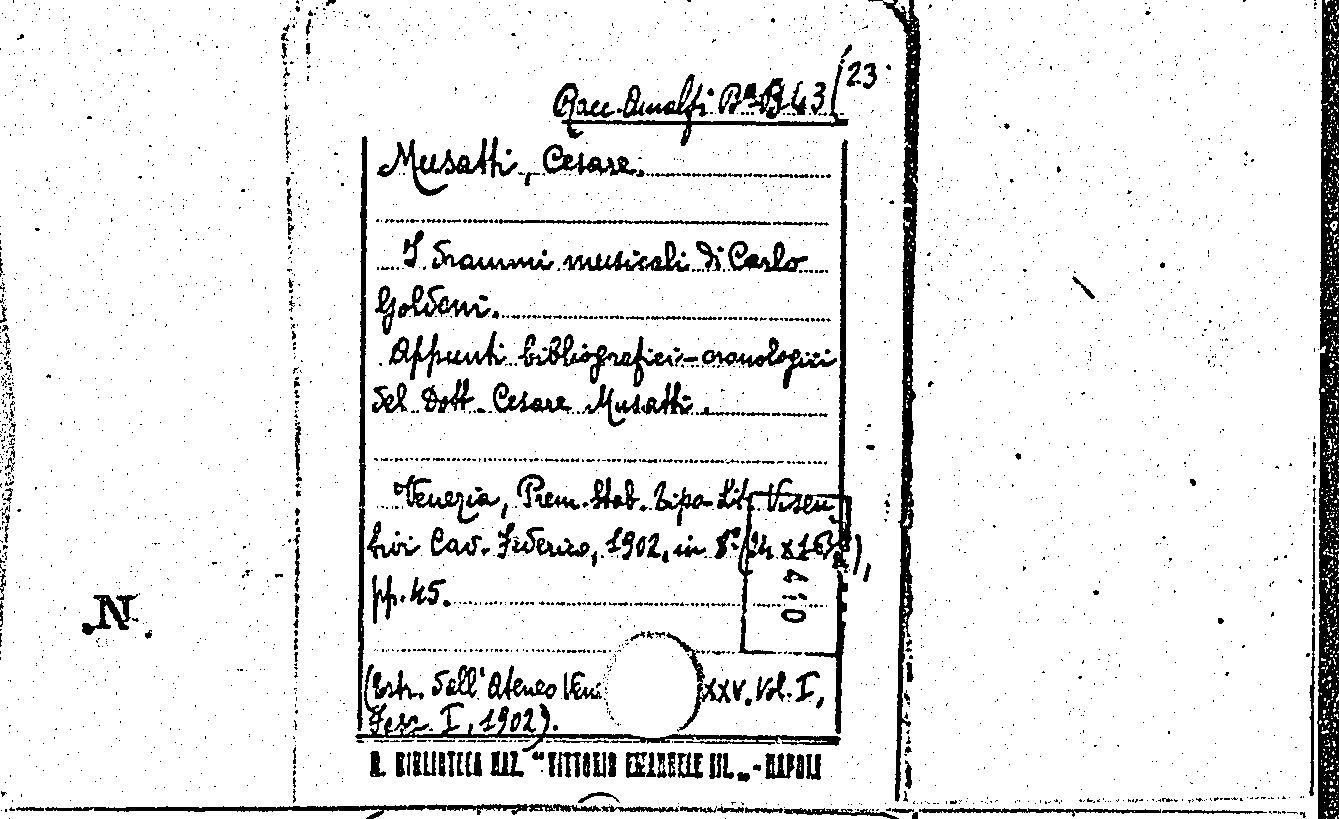 Racc. Amalfi Bª B 43/23.
Musatti, Cesare.
I drammi musicali di Carlo
Goldoni.
Appunti bibliografici-cronologici
del Dott. Cesare Musatti.
Venezia, Prem. Stab. Tipo-Lit. Visen
tini Cav. Federico, 1902, in 8º (24 x 16),
pp. 45.
410
(Estr. dall'Ateneo Ven XXV. Vol. I,
Fasc. I, 1902).
N.
R. BIBLIOTECA NAZ. "VITTORIO EMANUELE III." - NAPOLI